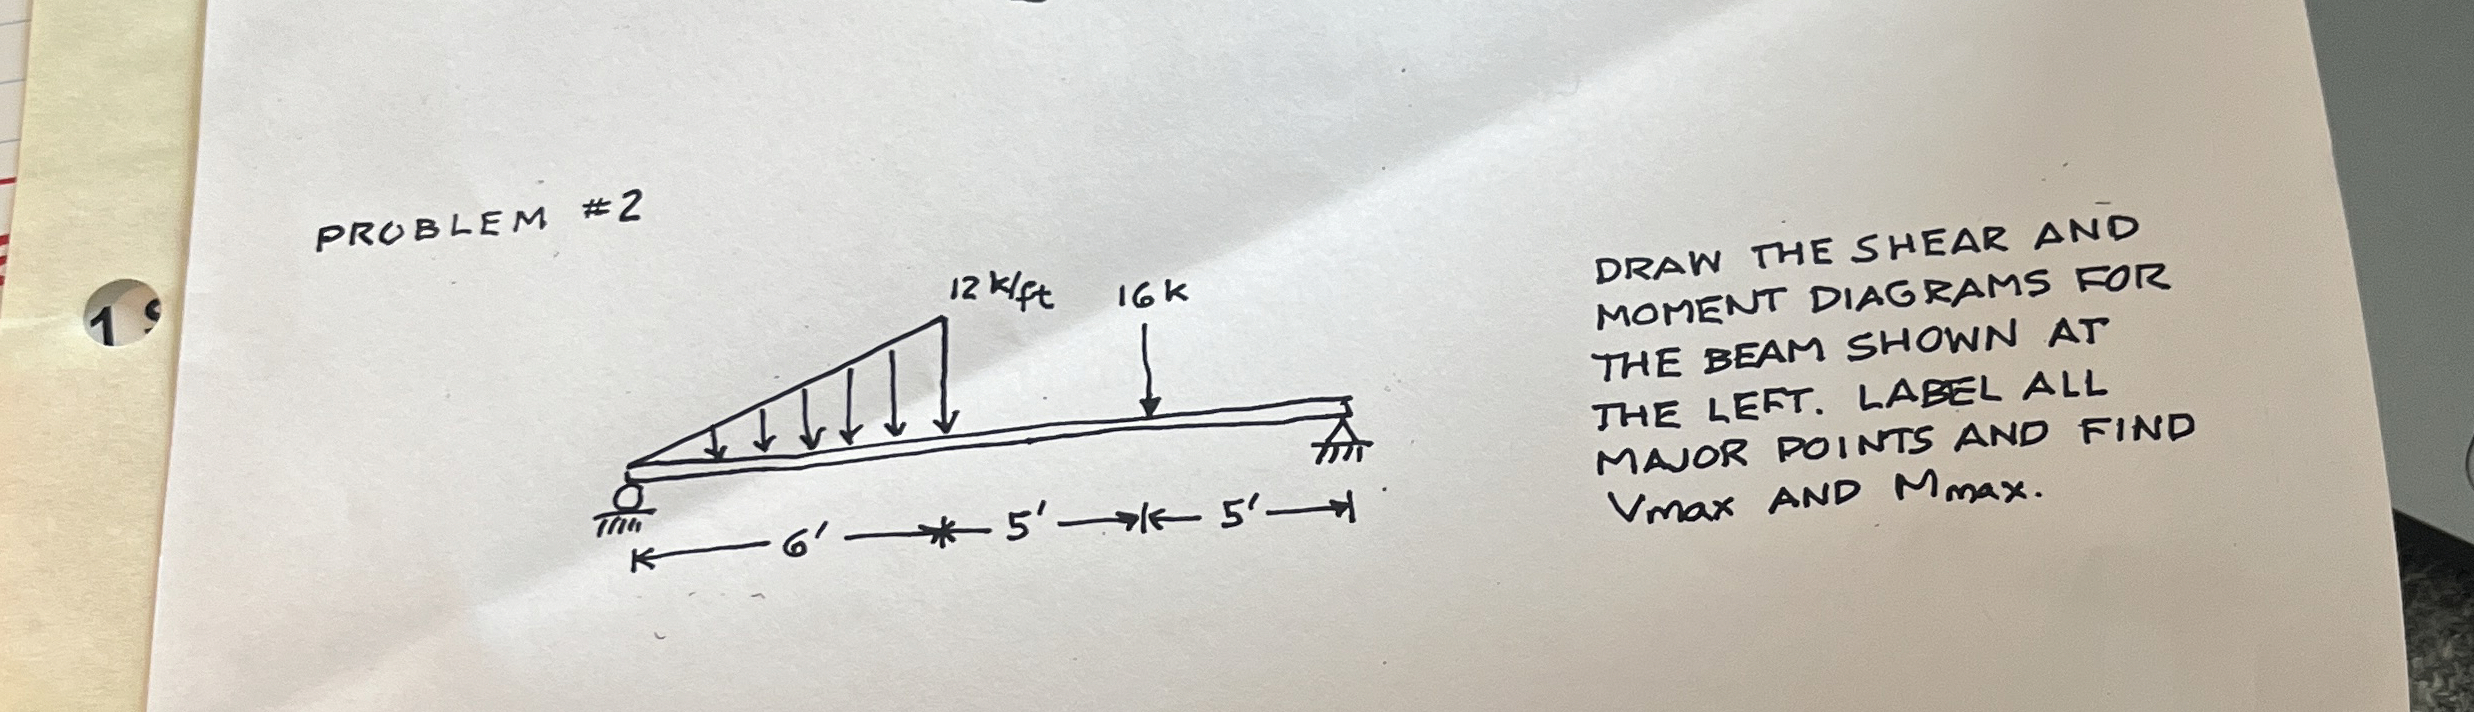 PROBLEM #2
12 k/ft
16 k
DRAW THE SHEAR AND
MOMENT DIAGRAMS FOR
THE BEAM SHOWN AT
THE LEFT. LABEL ALL
MAJOR POINTS AND FIND
Vmax AND Mmax.
6' 5' 5'
1